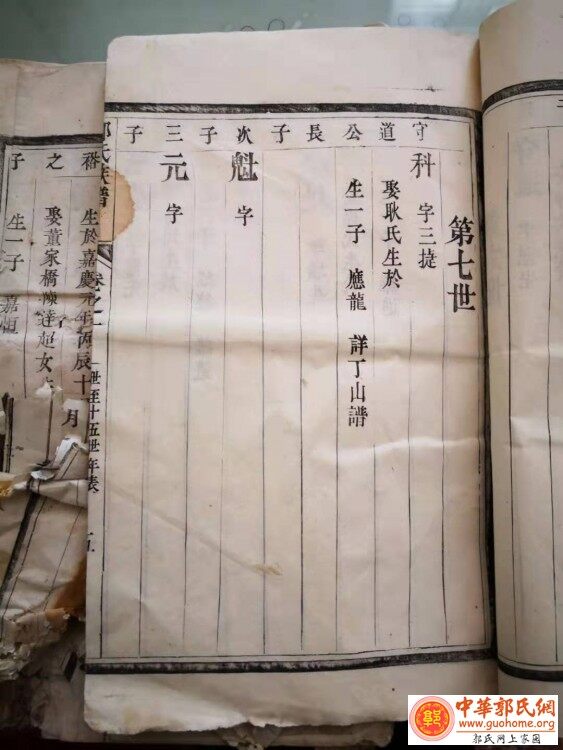 第七世
守道公長子
科 字三捷
娶耿氏生於
生一子 應龍 詳丁山譜
次子
魁 字
三子
元 字
氏族譜
卷之一
世至十五世年表
之子
生於嘉慶元年丙辰十 月
娶董家橋陳達超女
生一子 嘉恒
中華郭氏網
www.guohome.org
郭氏网上家園